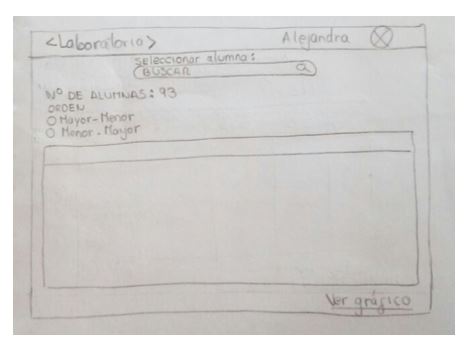 <Laboratoria> Alejandra
Seleccionar alumna:
BUSCAR
Nº DE ALUMNAS: 93
ORDEN
Mayor-Menor
Menor-Mayor
Ver gráfico